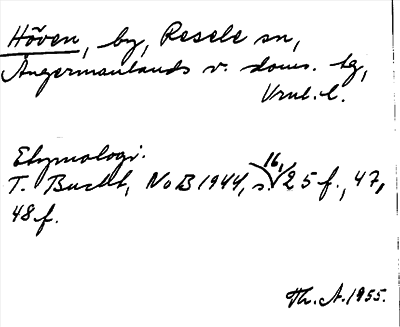 Höven, by, Resele sn,
Ångermanlands v. doms. tg,
Vnl. l.
Etymologi.
T. Bucht, NoB 1944, s. 16, 25 f., 47,
48 f.
Th. A. 1955.